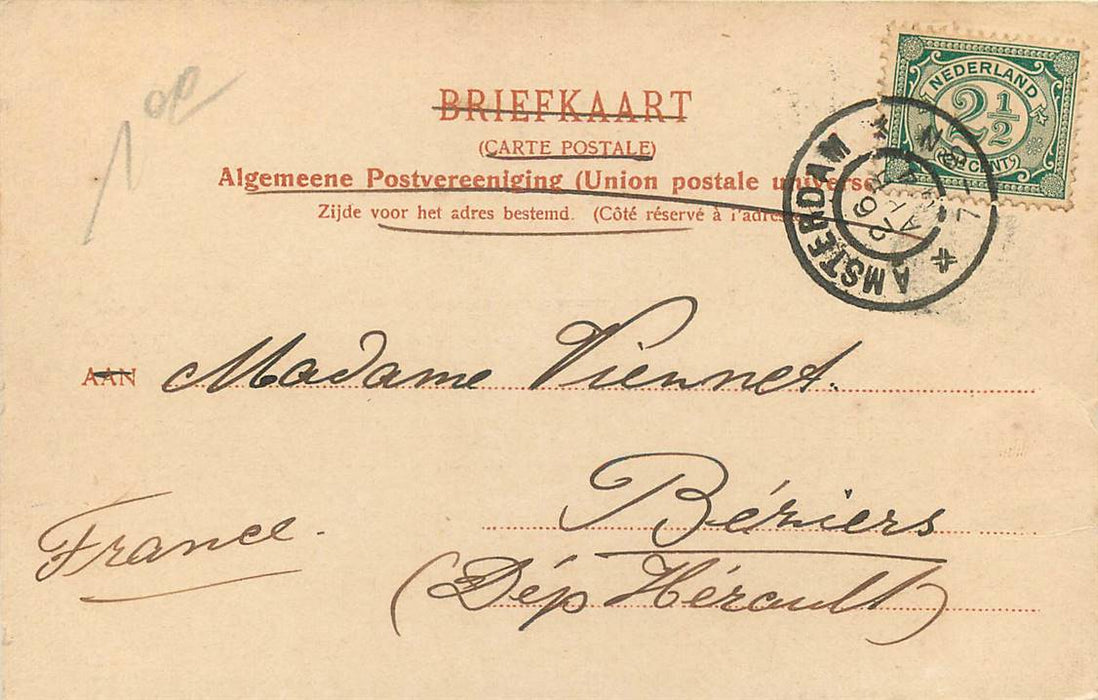 1 00
BRIEFKAART
(CARTE POSTALE)
Algemeene Postvereeniging (Union postale universe
Zijde voor het adres bestemd. (Côté réservé à l'adres
NEDERLAND
2½
CENT
AMSTERDAM
AAN Madame Viennet.
Béziers
France.
(Dép Hérault)